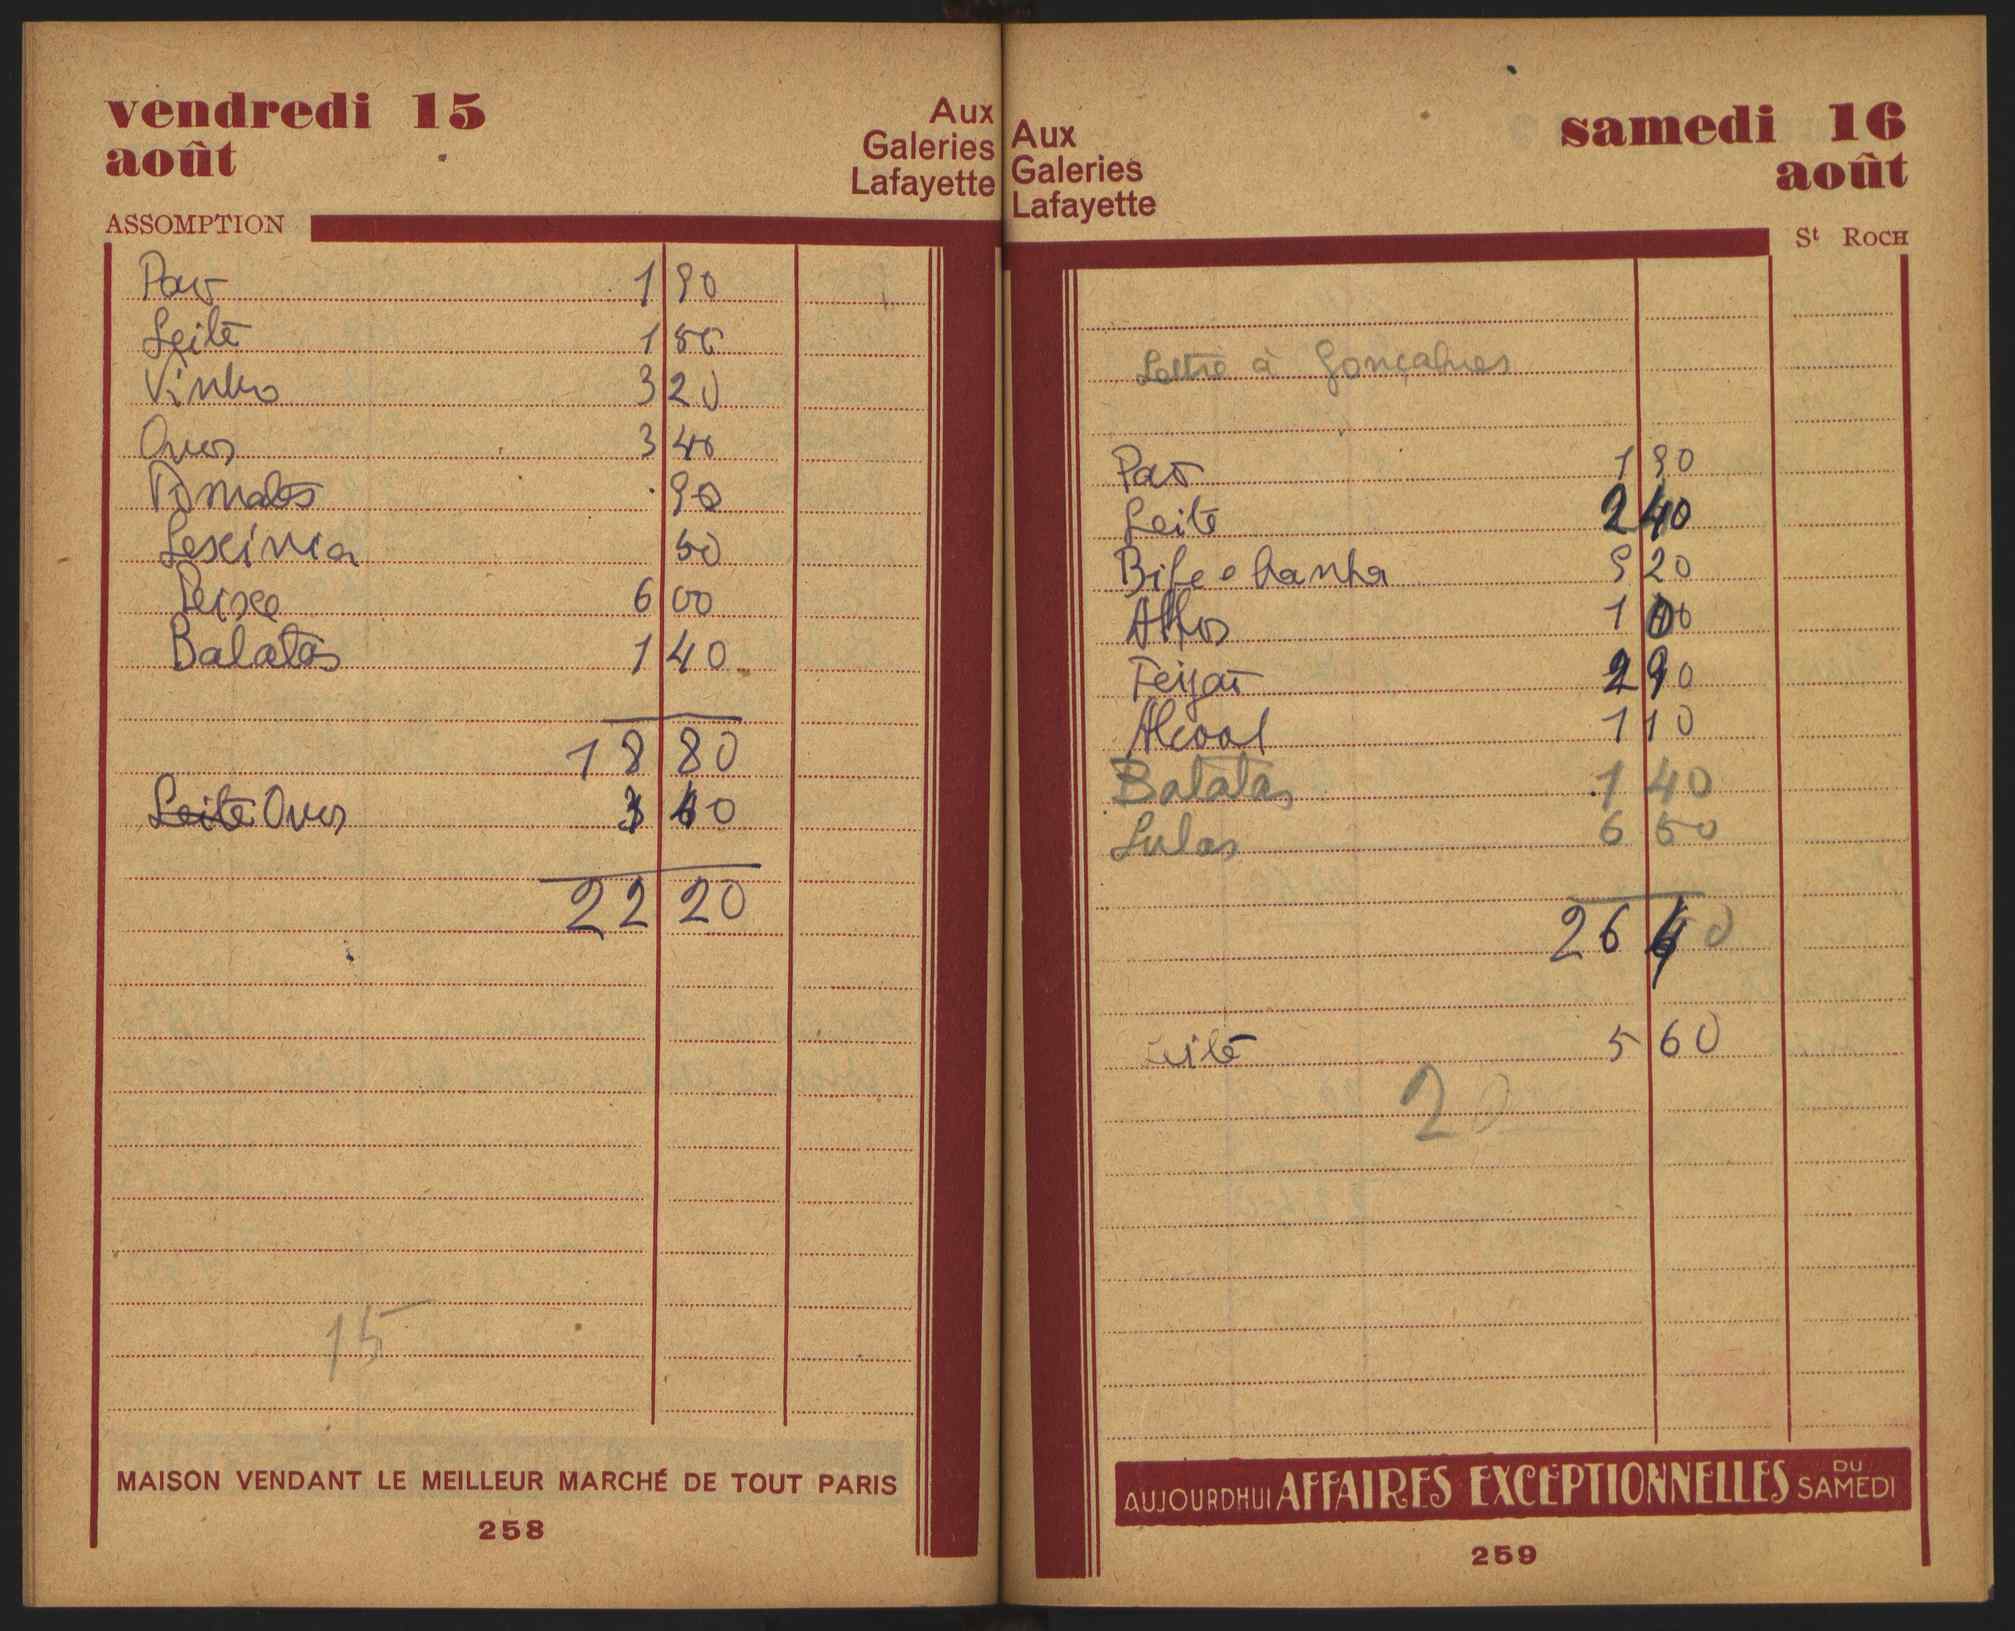 vendredi 15
août
Aux
Galeries
Lafayette
ASSOMPTION
Pão 1 90
Leite 1 50
Vinho 3 20
Ovos 3 40
Tomates 90
Lexívia 50
Peixe 6 00
Batatas 1 40
18 80
Leite Ovos 3 40
22 20
15
MAISON VENDANT LE MEILLEUR MARCHÉ DE TOUT PARIS
258
Aux
Galeries
Lafayette
samedi 16
août
St ROCH
Lettre à Gonçalves
Pão 1 90
Leite 2 40
Bife e banha 9 20
Alhos 1 00
Feijão 2 90
Alcool 1 10
Batatas 1 40
Lulas 6 50
26 40
Leite 5 60
20
AUJOURDHUI AFFAIRES EXCEPTIONNELLES DU SAMEDI
259